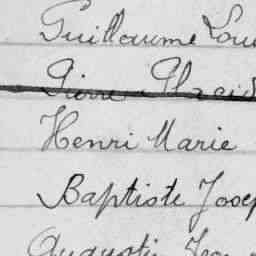 Guillaume Lou
Pierre Placid
Henri Marie
Baptiste Josep
Augustin Jea